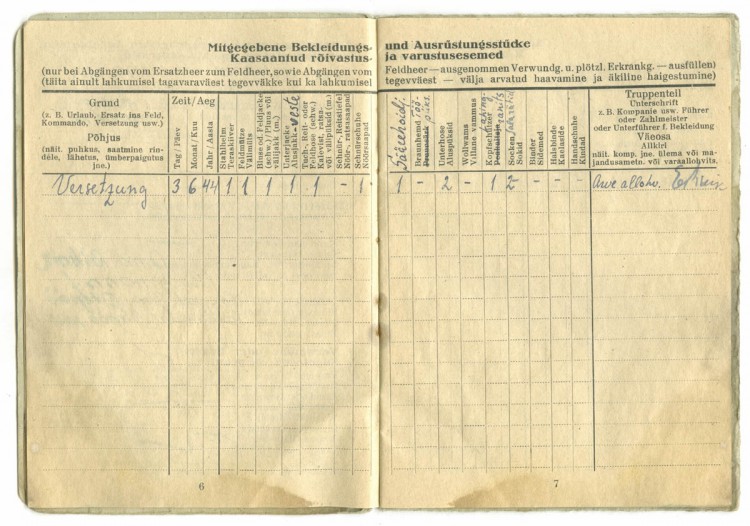 Mitgegebene Bekleidungs-
Kaasaantud rõivastus-
(nur bei Abgängen vom Ersatzheer zum Feldheer, sowie Abgängen vom
(täita ainult lahkumisel tagavaraväest tegevväkke kui ka lahkumisel
Grund
(z. B. Urlaub, Ersatz ins Feld,
Kommando, Versetzung usw.)
Põhjus
(näit. puhkus, saatmine rin-
dele, lähetus, ümberpaigutus
jne.)
Zeit / Aeg
Tag / Päev
Monat / Kuu
Jahr / Aasta
Stahlhelm
Teraskiiver
Feldmütze
Välimüts
Bluse od. Feldjacke
(schw.) / Pluus või
välijakk (m.)
Unterjacke
Alusjakk
veste
Tuch-, Reit- oder
Feldhose (schw.)
Kalevist, ratsa-
või välipüksid (m.)
Schnür-, Reitstiefel
Nöör-, ratsasaapad
Schnürschuhe
Nöörsaapad
Versetzung 3 6 44 1 1 1 1 1 - 1
6
und Ausrüstungsstücke
ja varustusesemed
Feldheer — ausgenommen Verwundg. u. plötzl. Erkrankg. — ausfüllen)
tegevväest — välja arvatud haavamine ja äkiline haigestumine)
Braunhemd
Pruunsärk
Unterhose
Aluspüksid
Wollwams
Villane vammus
Kopfschützer
Peakaitsja
Socken
Sokid
Binder
Sidemed
Halsbinde
Kaelaside
Handschuhe
Kindad
Truppenteil
Unterschrift
z. B. Kompanie usw. Führer
oder Zahlmeister
oder Unterführer f. Bekleidung
Väeosa
Allkiri
näit. komp. jne. ülema või ma-
jandusametn. või varaallohvits.
1 - 2 - 1 2 - - -
7